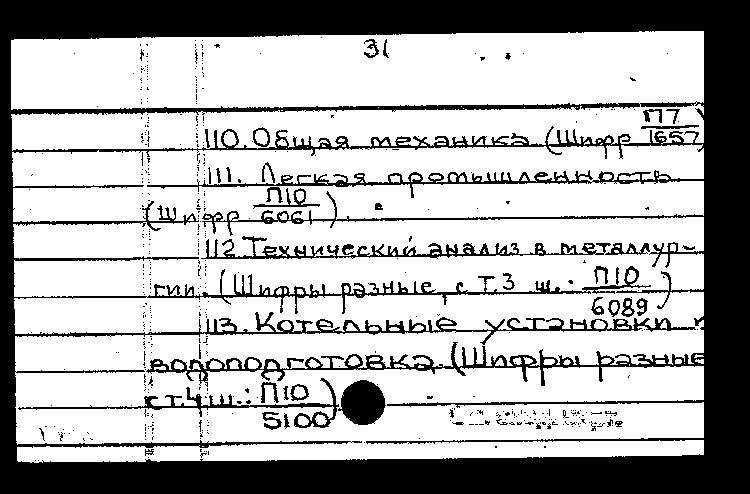 31
110. Общая механика (Шифр П7/1657)
111. Легкая промышленность
(Шифр П10/6061).
112 Технический анализ в металлур-
гии. (Шифры разные, с т.3 ш.: П10/6089)
113. Котельные установки и
водоподготовка (Шифры разные
с т.4 ш.: П10/5100)